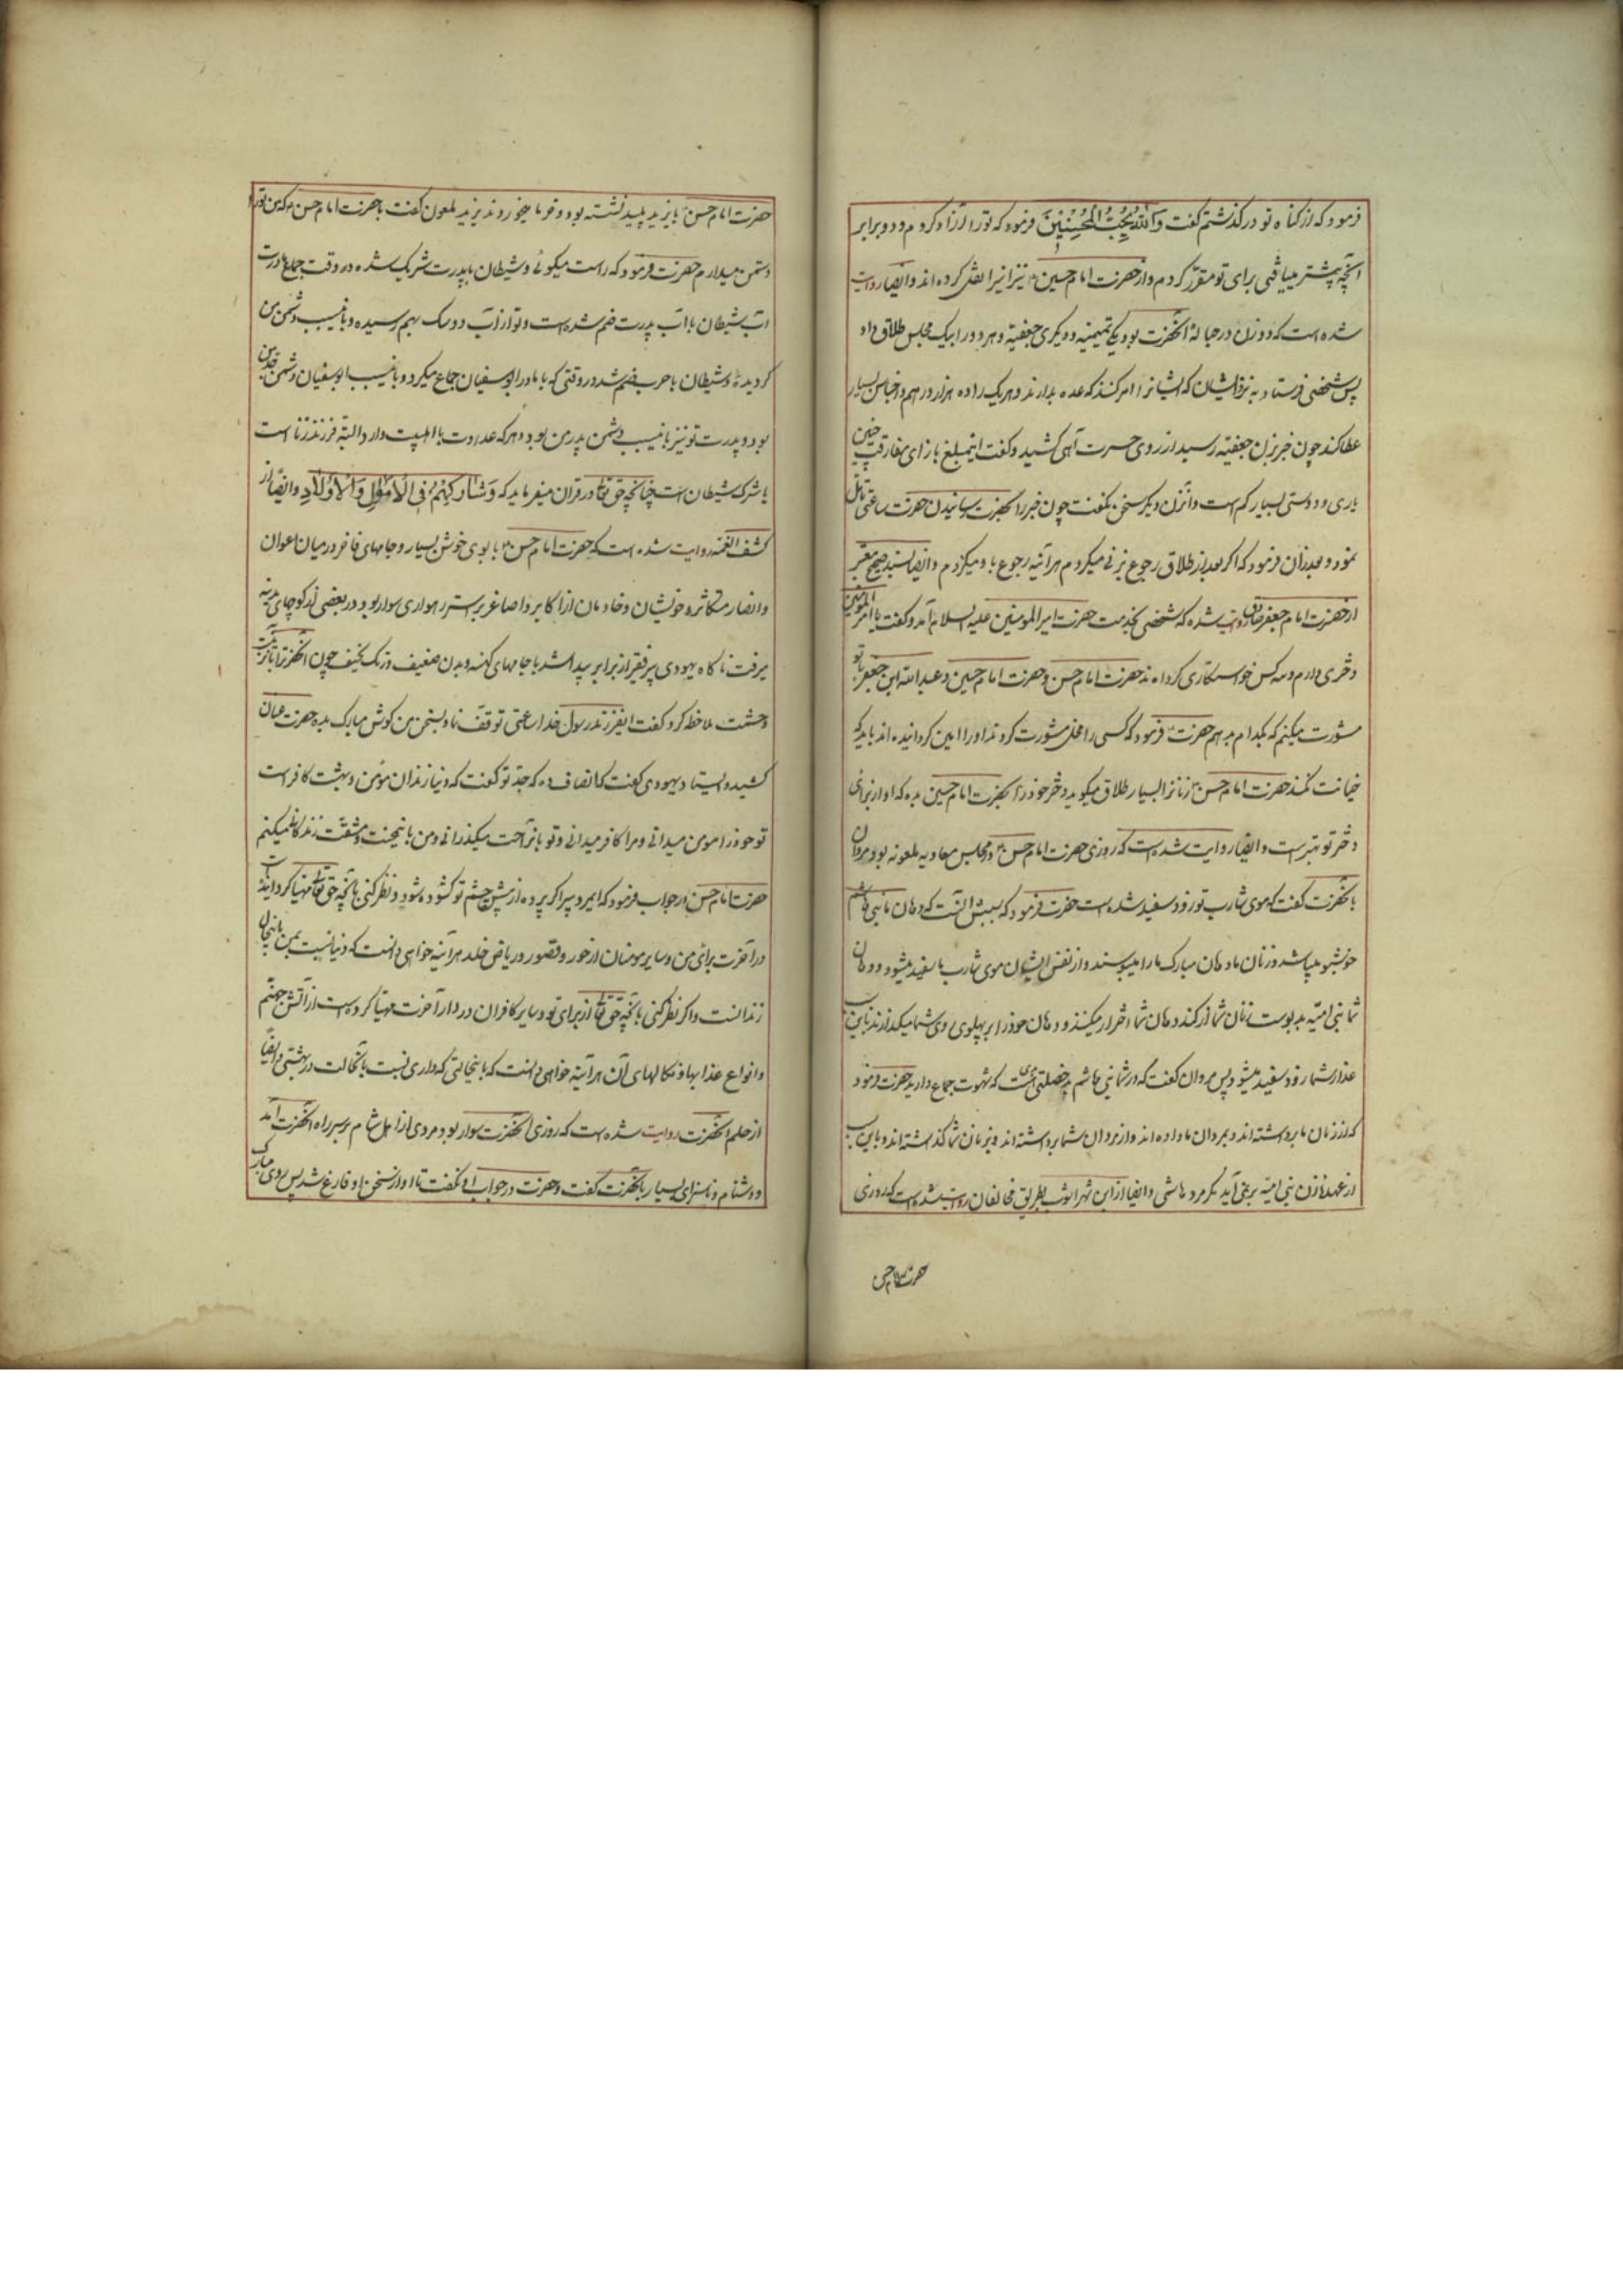 فرمود که از گناه تو درگذشتم گفت وَاللّٰهُ یُحِبُّ الْمُحْسِنِیْنَ فرمود که تو را آزاد کردم و دو برابر
آنچه پیشتر مییافتی برای تو مقرر کردم و از حضرت امام حسین نیز اینرا نقل کرده اند و ایضا روایت
شده است که دو زن در حبالهٔ آنحضرت بود یکی تمیمیه و دیگری جعفیه و هر دو را بیک مجلس طلاق داد
پس شخصی فرستاد به نزد ایشان که ایشانرا امر کند که عده بدارند و هر یک را ده هزار درهم و اجناس بسیار
عطا کند چون خبر بزن جعفیه رسید از روی حسرت آهی کشید و گفت اینمبلغ بازای مفارقت چنین
یاری و دوستی بسیار کم است و آنزن دیگر سخن نگفت چون خبر را بحضرت رسانیدند حضرت ساعتی تامل
نمود و بعد از آن فرمود که اگر بعد از طلاق رجوع بزنی میکردم هر آینه رجوع باو میکردم و ایضا بسند صحیح معتبر
از حضرت امام جعفر صادق روایت شده که شخصی بخدمت حضرت امیر المومنین علیه السلام آمد و گفت یا امیر المومنین
دختری دارم و سه کس خواستگاری کرده اند حضرت امام حسن و حضرت امام حسین و عبدالله ابن جعفر با تو
مشورت میکنم که بکدام بدهم حضرت فرمود که کسی را محل مشورت کردند او را امین گردانیده اند باید که
خیانت نکند حضرت امام حسن زنانرا بسیار طلاق میگوید دختر خود را بحضرت امام حسین بده که او از برای
دختر تو بهتر است و ایضا روایت شده است که روزی حضرت امام حسن در مجلس معاویه ملعونه بود مروان
بآنحضرت گفت که موی شارب تو زود سفید شده است حضرت فرمود که سببش آنست که دهان ما بنی هاشم
خوشبو میباشد و زنان ما دهان مبارک ما را میبوسند و از نفس ایشان موی شارب ما سفید میشود و دهان
شما بنی امیه بدبوست زنان شما از گند دهان شما احتراز میکنند و دهان خود را بر پهلوی روی شما میگذارند باین سبب
عذار شما زود سفید میشود پس مروان گفت که در شما بنی هاشم بد خصلتی هست که شهوت جماع دارید حضرت فرمود
که از زنان ما برداشته اند و بمردان ما داده اند و از مردان شما برداشته اند و بزنان شما گذاشته اند و باین سبب
از عهده زن بنی امیه بر نمی آید مگر مرد هاشمی و ایضا از ابن شهر آشوب بطریق مخالفان روایت شده است که روزی
حضرت امام حسن
حضرت امام حسن با یزید پلید نشسته بود و خرما میخوردند یزید ملعون گفت با حضرت امام حسن که من تو را
دشمن میدارم حضرت فرمود که راست میگوئی و شیطان با پدرت شریک شده در وقت جماع مادرت
آب شیطان با آب پدرت ضم شده است و تو از آب دو سک بهم رسیده و باینسبب دشمن من
گردیدهٔ و شیطان با حرب ضم شد در وقتی که با مادر ابوسفیان جماع میکرد و باینسبب ابوسفیان دشمن جد من
بود و پدرت تو نیز باینسبب دشمن پدر من بود و هر که عداوت با اهلبیت دارد البته فرزند زنا است
یا شرک شیطان است چنانچه حق تعالی در قران میفرماید که وَ شَارِکْهُمْ فِی الْاَمْوَالِ وَالْاَوْلَادِ و ایضا از
کشف الغمه روایت شده است که حضرت امام حسن با بوی خوش بسیار و جامهای فاخر در میان اعوان
و انصار متکاثره و خویشان و خادمان از اکابر و اصاغر بر استر رهواری سوار بود در بعضی از کوچهای مدینه
میرفت ناگاه یهودی پیر فقیر از برابر پیدا شد با جامهای کهنه و بدن ضعیف و تن نحیف چون آنحضرترا با آنزینت
و حشمت ملاحظه کرد گفت ایفرزند رسول خدا ساعتی توقف نما و بسخن من گوش مبارک بده حضرت عنان
کشید و ایستاد یهودی گفت که انصاف ده که جد تو گفت که دنیا زندان مؤمن و بهشت کافر است
تو خود را مومن میدانی و مرا کافر میدانی و تو باین راحت میگذرانی و من باین محنت و مشقت زندگانی میکنم
حضرت امام حسن در جواب فرمود که ایمرد پیر اگر پرده از پیش چشم تو گشوده شود و نظر کنی بآنچه حق تعالی مهیا کرده است
در آخرت برای من و سایر مومنان از حور و قصور در ریاض خلد هر آینه خواهی دانست که دنیا نسبت بمن باینحال
زندانست و اگر نظر کنی بآنچه حق تعالی از برای تو و سایر کافران در دار آخرت مهیا کرده است از آتش جهنم
و انواع عذابها و نکالهای آن هر آینه خواهی دانست که باینحالتی که داری نسبت بآنحالت در بهشتی و ایضا
از حلم آنحضرت روایت شده است که روزی آنحضرت سوار بود مردی از اهل شام بر سر راه آنحضرت آمد
و دشنام و ناسزای بسیار بآنحضرت گفت و حضرت در جواب او نگفت تا او از سخن او فارغ شد پس روی مبارک